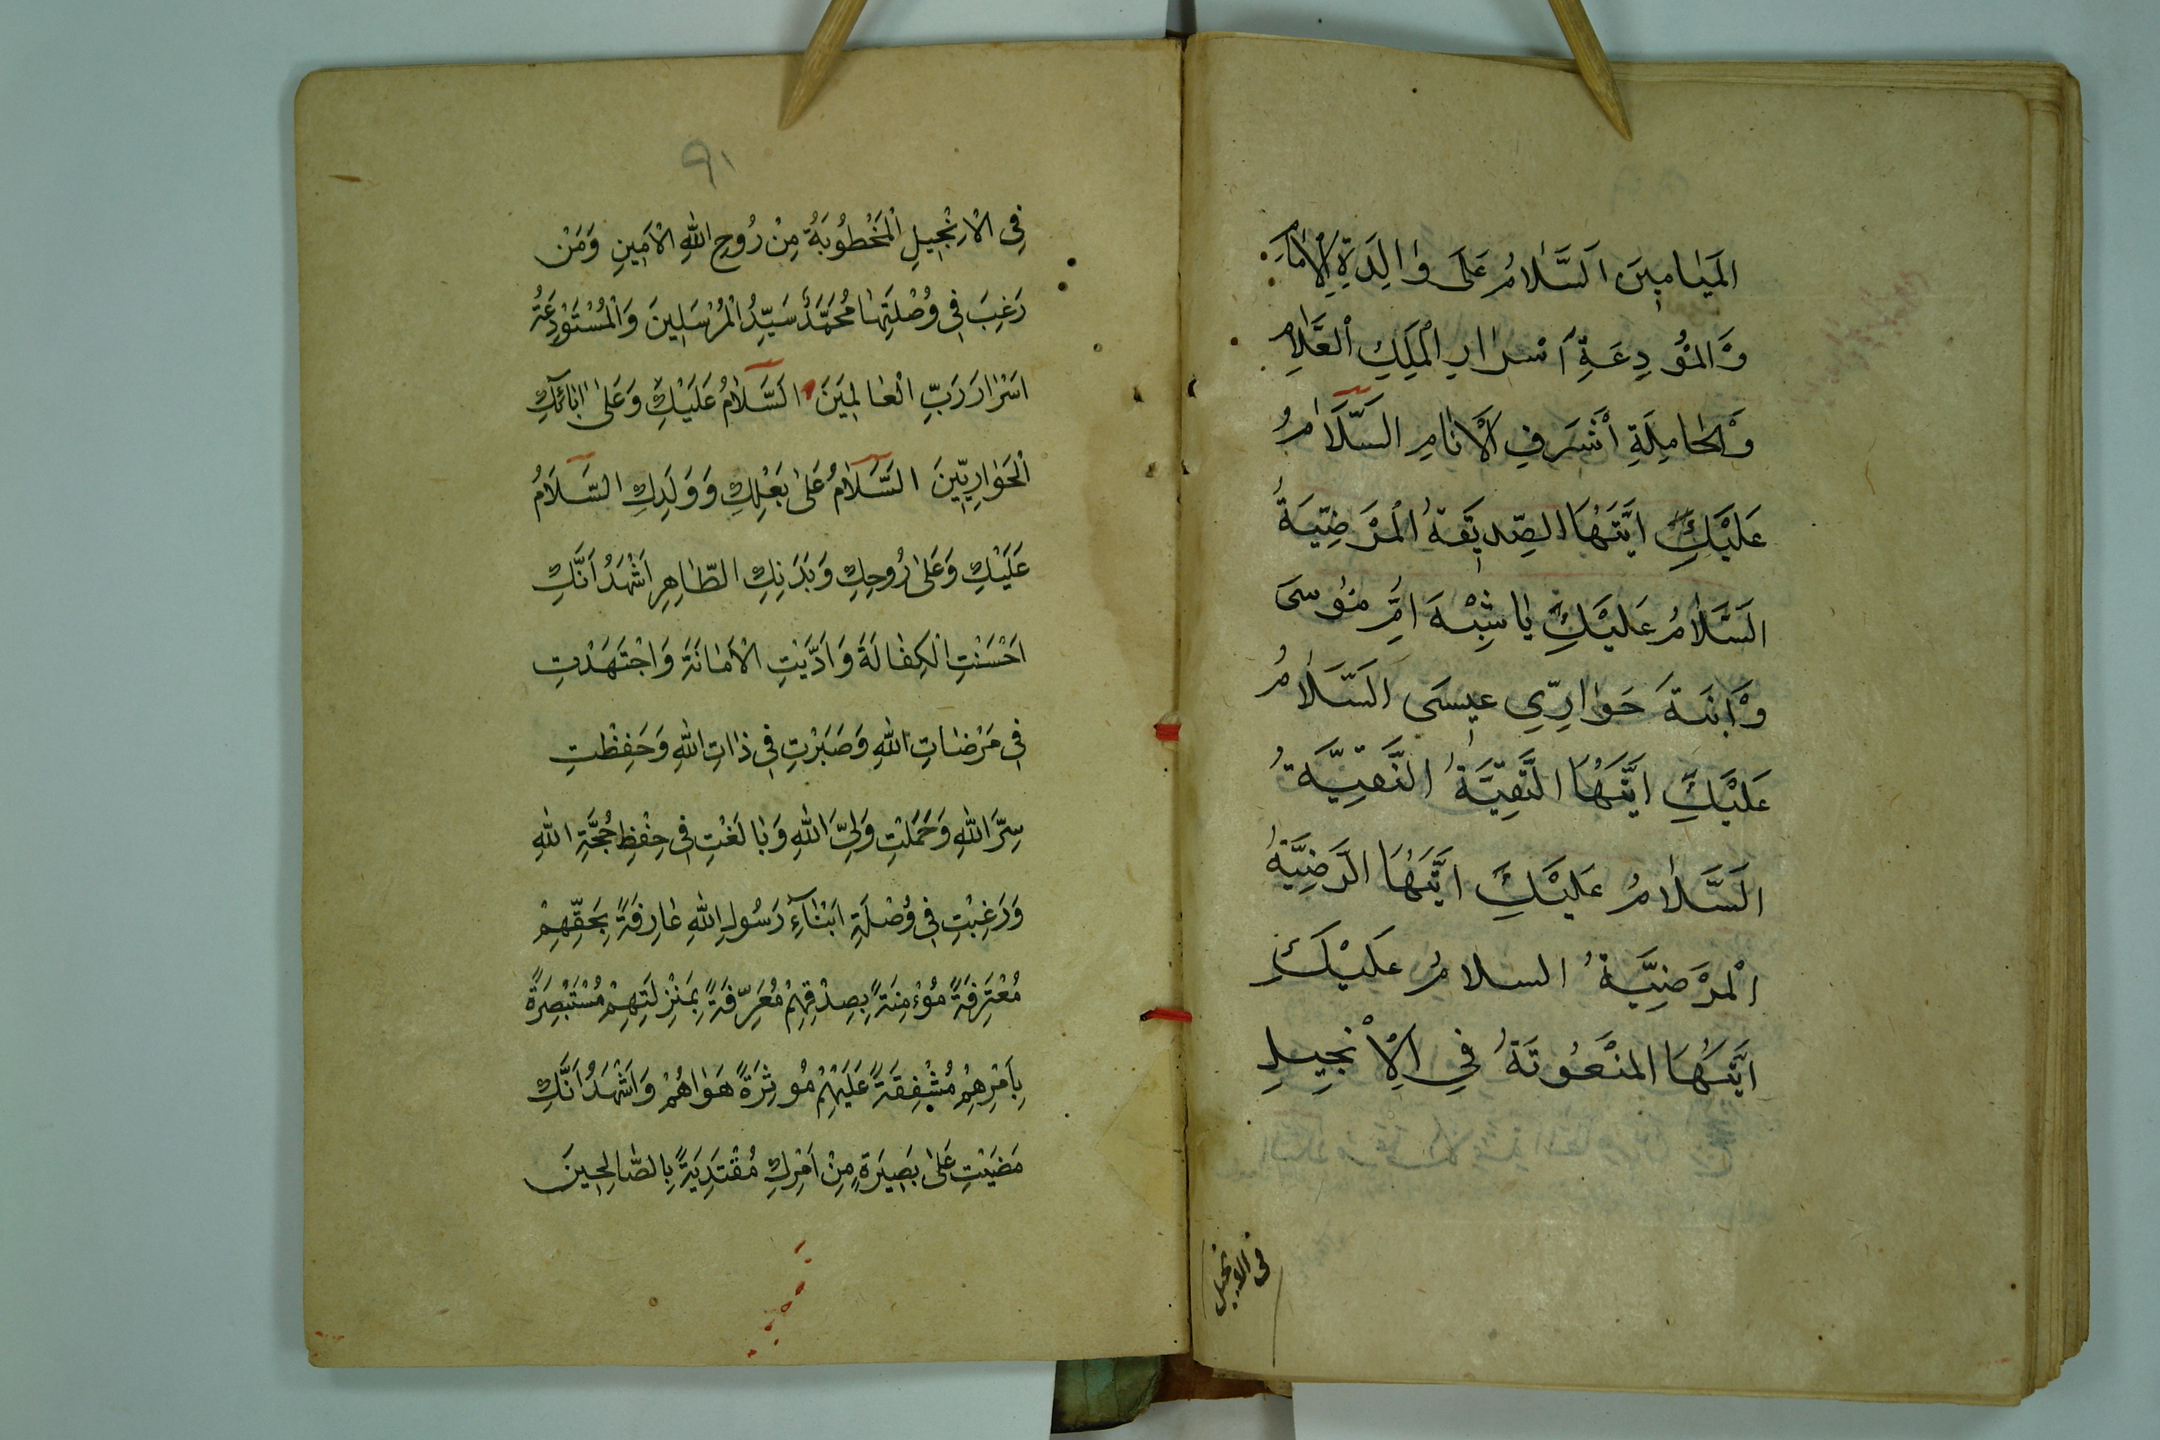 المَيٰامٖينَ اَلسَّلٰامُ عَلىٰ وٰالِدَةِ الْاِمٰامِ
وَالمُوُدِعَةِ اَسْرٰارِ الْمَلِكِ الْعَلّٰامِ
وَالْحٰامِلَةِ اَشْرَفِ الْاَنٰامِ السَّلَامُ
عَلَيْكِ اَيَّتُهَا الصِّدیٖقَةُ الْمَرْضِيَّةُ
السَّلٰامُ عَلَيْكِ يٰا شِبْهَ اُمِّ مُوُسىَ
وَابْنَةَ حَوٰارِیِّ عٖيسىَ السَّلٰامُ
عَلَيْكِ اَيَّتُهَا التَّقِيَّةُ النَّقِيَّةُ
السَّلٰامُ عَلَيْكِ اَيَّتُهَا الرَّضِيَّةُ
الْمَرْضِيَّةُ السلامُ عَلَيْكِ
اَيَّتُهَا المَنْعُوتَةُ فِي الْاِنْجِيلِ
فى الانجيل
٩١
فِى الْاِنْجٖيلِ الْمَخْطُوبَةُ مِنْ رُوحِ اللّٰهِ الْاَمٖينِ وَمَنْ
رَغِبَ فٖى وُصْلَتِهٰا مُحَمَّدٌ سَيِّدُ الْمُرْسَلٖينَ وَالْمُسْتَوْدِعَةُ
اَسْرٰارَ رَبِّ الْعٰالَمٖينَ اَلسَّلٰامُ عَلَيْكِ وَعَلىٰ اٰبٰائِكِ
الْحَوٰارِيّٖينَ السَّلٰامُ عَلىٰ بَعْلِكِ وَوَلَدِكِ السَّلَامُ
عَلَيْكِ وَعَلىٰ رُوحِكِ وَبَدَنِكِ الطّٰاهِرِ اَشْهَدُ اَنَّكِ
اَحْسَنْتِ الْكِفٰالَةَ وَاَدَّيْتِ الْاَمٰانَةَ وَاجْتَهَدْتِ
فٖى مَرْضٰاتِ اللّٰهِ وَصَبَرْتِ فٖى ذٰاتِ اللّٰهِ وَحَفِظْتِ
سِرَّ اللّٰهِ وَحَمَلْتِ وَلِىَّ اللّٰهِ وَبٰالَغْتِ فٖى حِفْظِ حُجَّةِ اللّٰهِ
وَرَغِبْتِ فٖى وُصْلَةِ اَبْنٰآءِ رَسُولِ اللّٰهِ عٰارِفَةً بِحَقِّهِمْ
مُعْتَرِفَةً مُؤْمِنَةً بِصِدْقِهِمْ مُعَرِّفَةً بِمَنْزِلَتِهِمْ مُسْتَبْصِرَةً
بِاَمْرِهِمْ مُشْفِقَةً عَلَيْهِمْ مُوثِرَةً هَوٰاهُمْ وَاَشْهَدُ اَنَّكِ
مَضَيْتِ عَلىٰ بَصٖيرَةٍ مِنْ اَمْرِكِ مُقْتَدِيَةً بِالصّٰالِحٖينَ